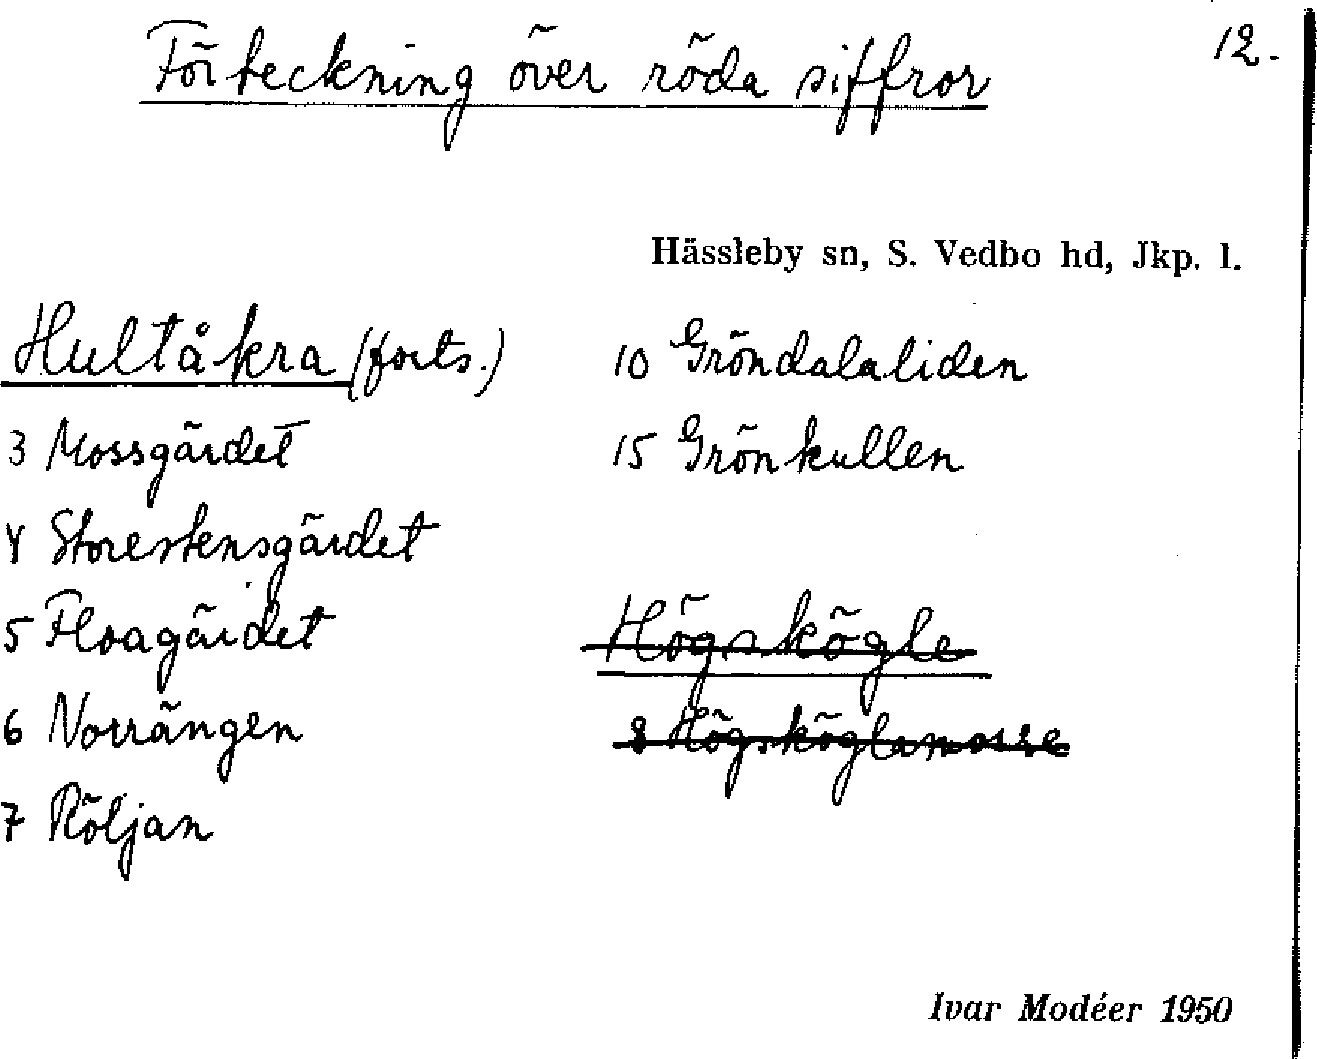 Förteckning över röda siffror
12.
Hässleby sn, S. Vedbo hd, Jkp. l.
Hultåkra (forts.)
3 Mossgärdet
4 Storestensgärdet
5 Floagärdet
6 Norrängen
7 Röljan
10 Gröndalaliden
15 Grönkullen
Högskögle
8 Högsköglemosse
Ivar Modéer 1950